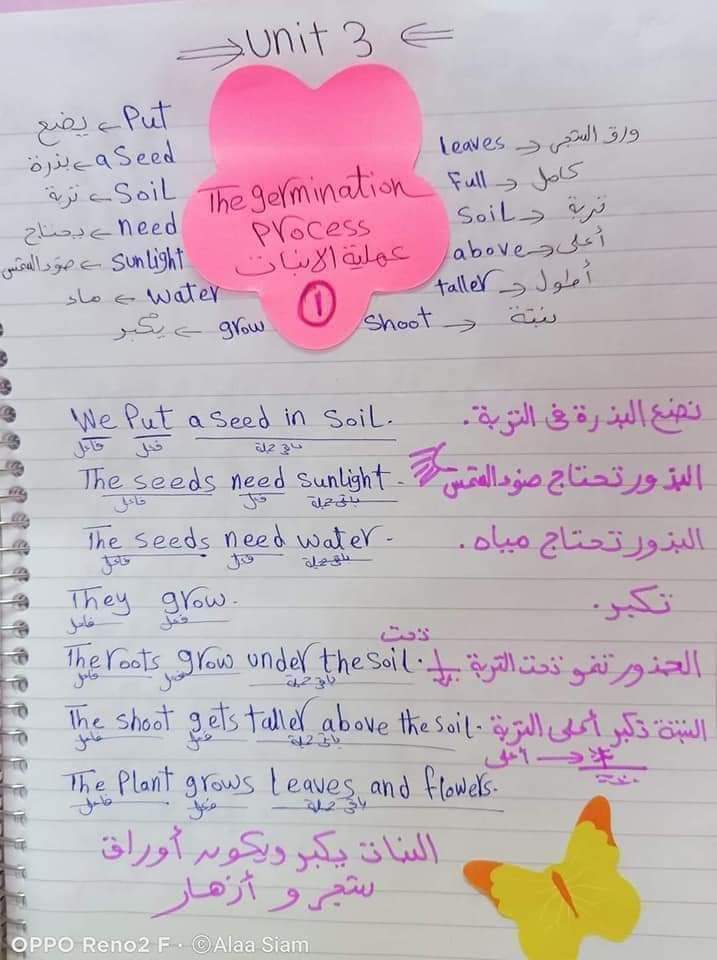 ⇒ Unit 3 ⇐
Put → يضع
a Seed → بذرة
Soil → تربة
need → يحتاج
Sunlight → ضوء الشمس
water → ماء
grow → يكبر
The germination
Process
عملية الانبات
1
leaves → ورق الشجر
Full → كامل
Soil → تربة
above → أعلى
taller → أطول
Shoot → نبتة
We Put a Seed in Soil. نضع البذرة فى التربة.
فاعل فعل باقى جملة
The seeds need sunlight. البذور تحتاج ضوء الشمس
فاعل فعل باقى جملة
The seeds need water. البذور تحتاج مياه.
فاعل فعل باقى جملة
They grow. تكبر.
فاعل فعل
تحت
The roots grow under the soil. الجذور تنمو تحت التربة
فاعل فعل باقى جملة
The shoot gets taller above the soil. النبتة تكبر أعلى التربة
فاعل فعل باقى جملة
أعلى
The Plant grows leaves and flowers.
فاعل فعل باقى جملة
النبات يكبر ويكون أوراق
شجر و أزهار
OPPO Reno2 F · ©Alaa Siam